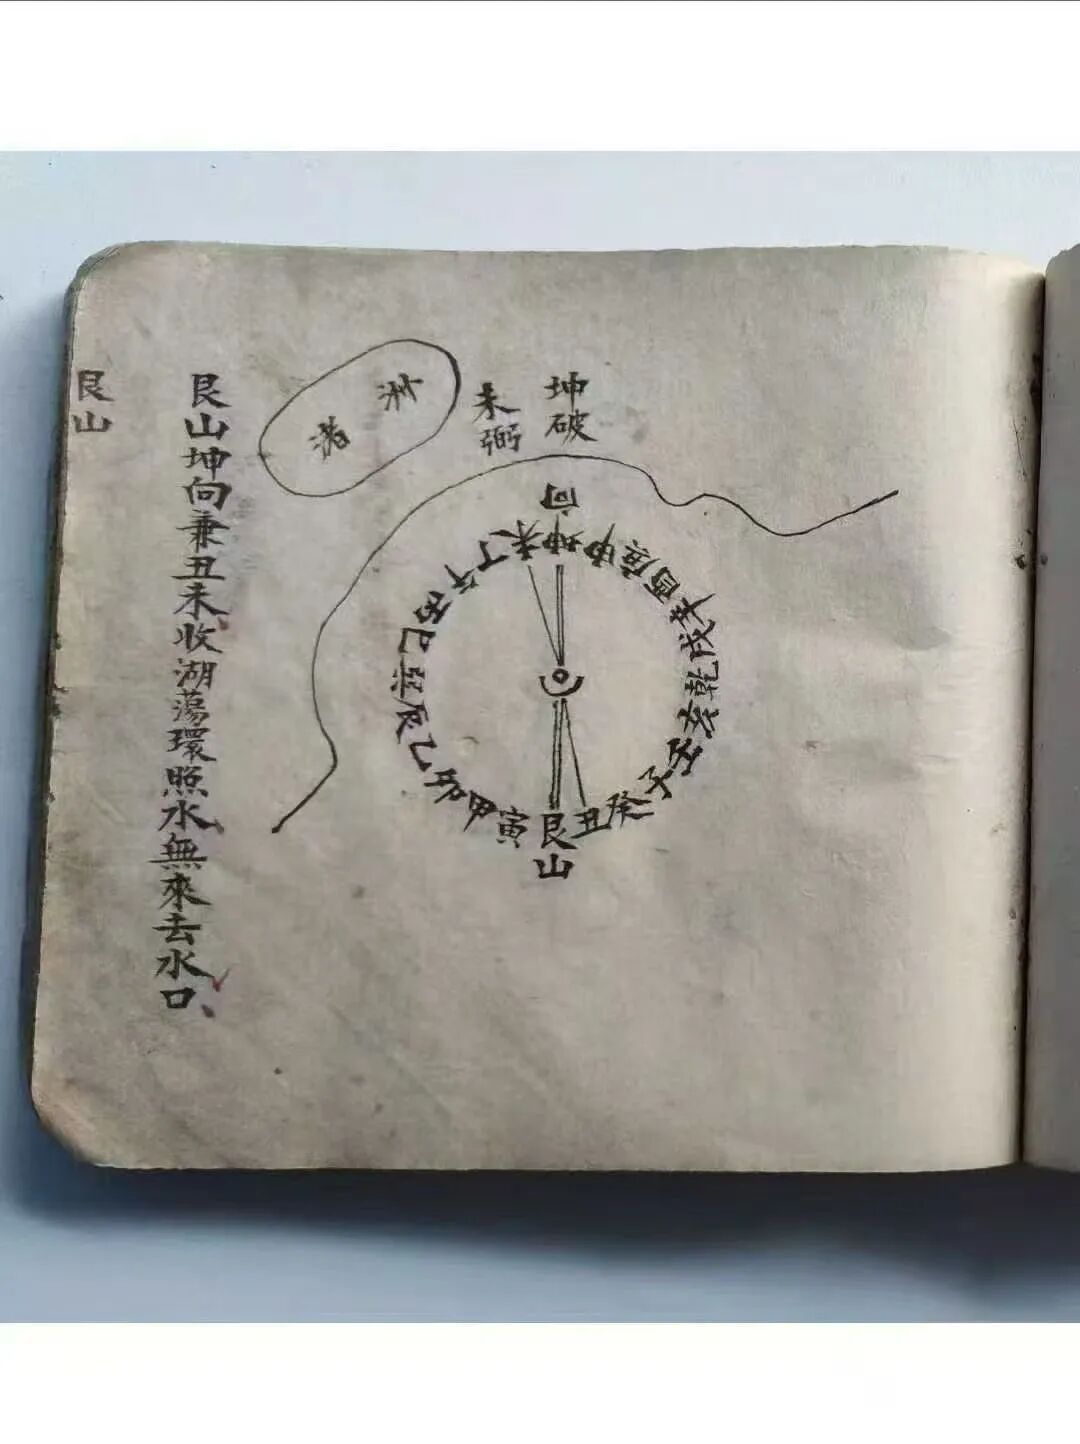 坤破
未弼
洲渚
向
坤申庚酉辛戌乾亥壬子癸丑艮寅甲卯乙辰巽巳丙午丁未
山
艮山坤向兼丑未、收湖蕩環照水、無來去水口、
艮山